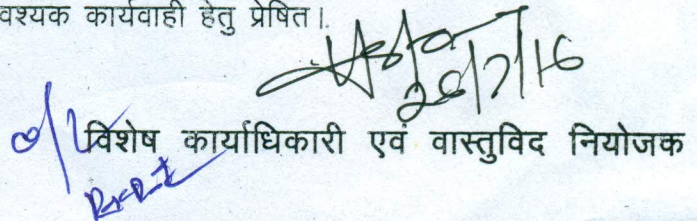 वश्यक कार्यवाही हेतु प्रेषित।
26/7/16
विशेष कार्याधिकारी एवं वास्तुविद नियोजक